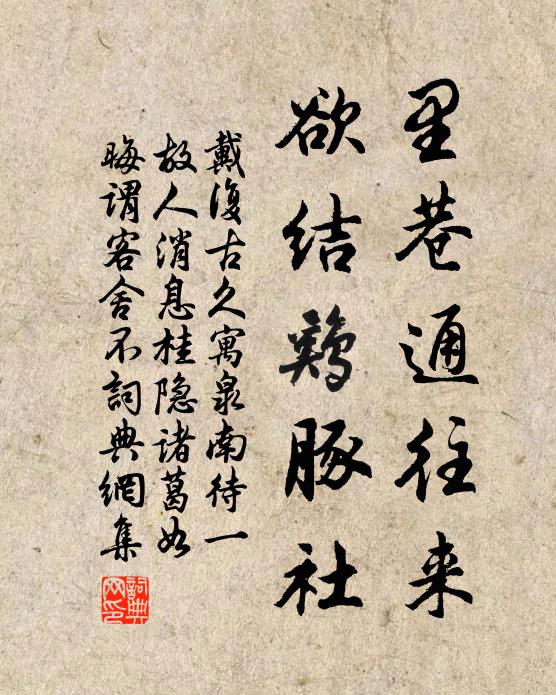 里巷通往来
欲结鸡豚社
戴復古久寓泉南待一
故人消息桂隐諸葛如
晦谓客舍不詞典網集
詞典网印